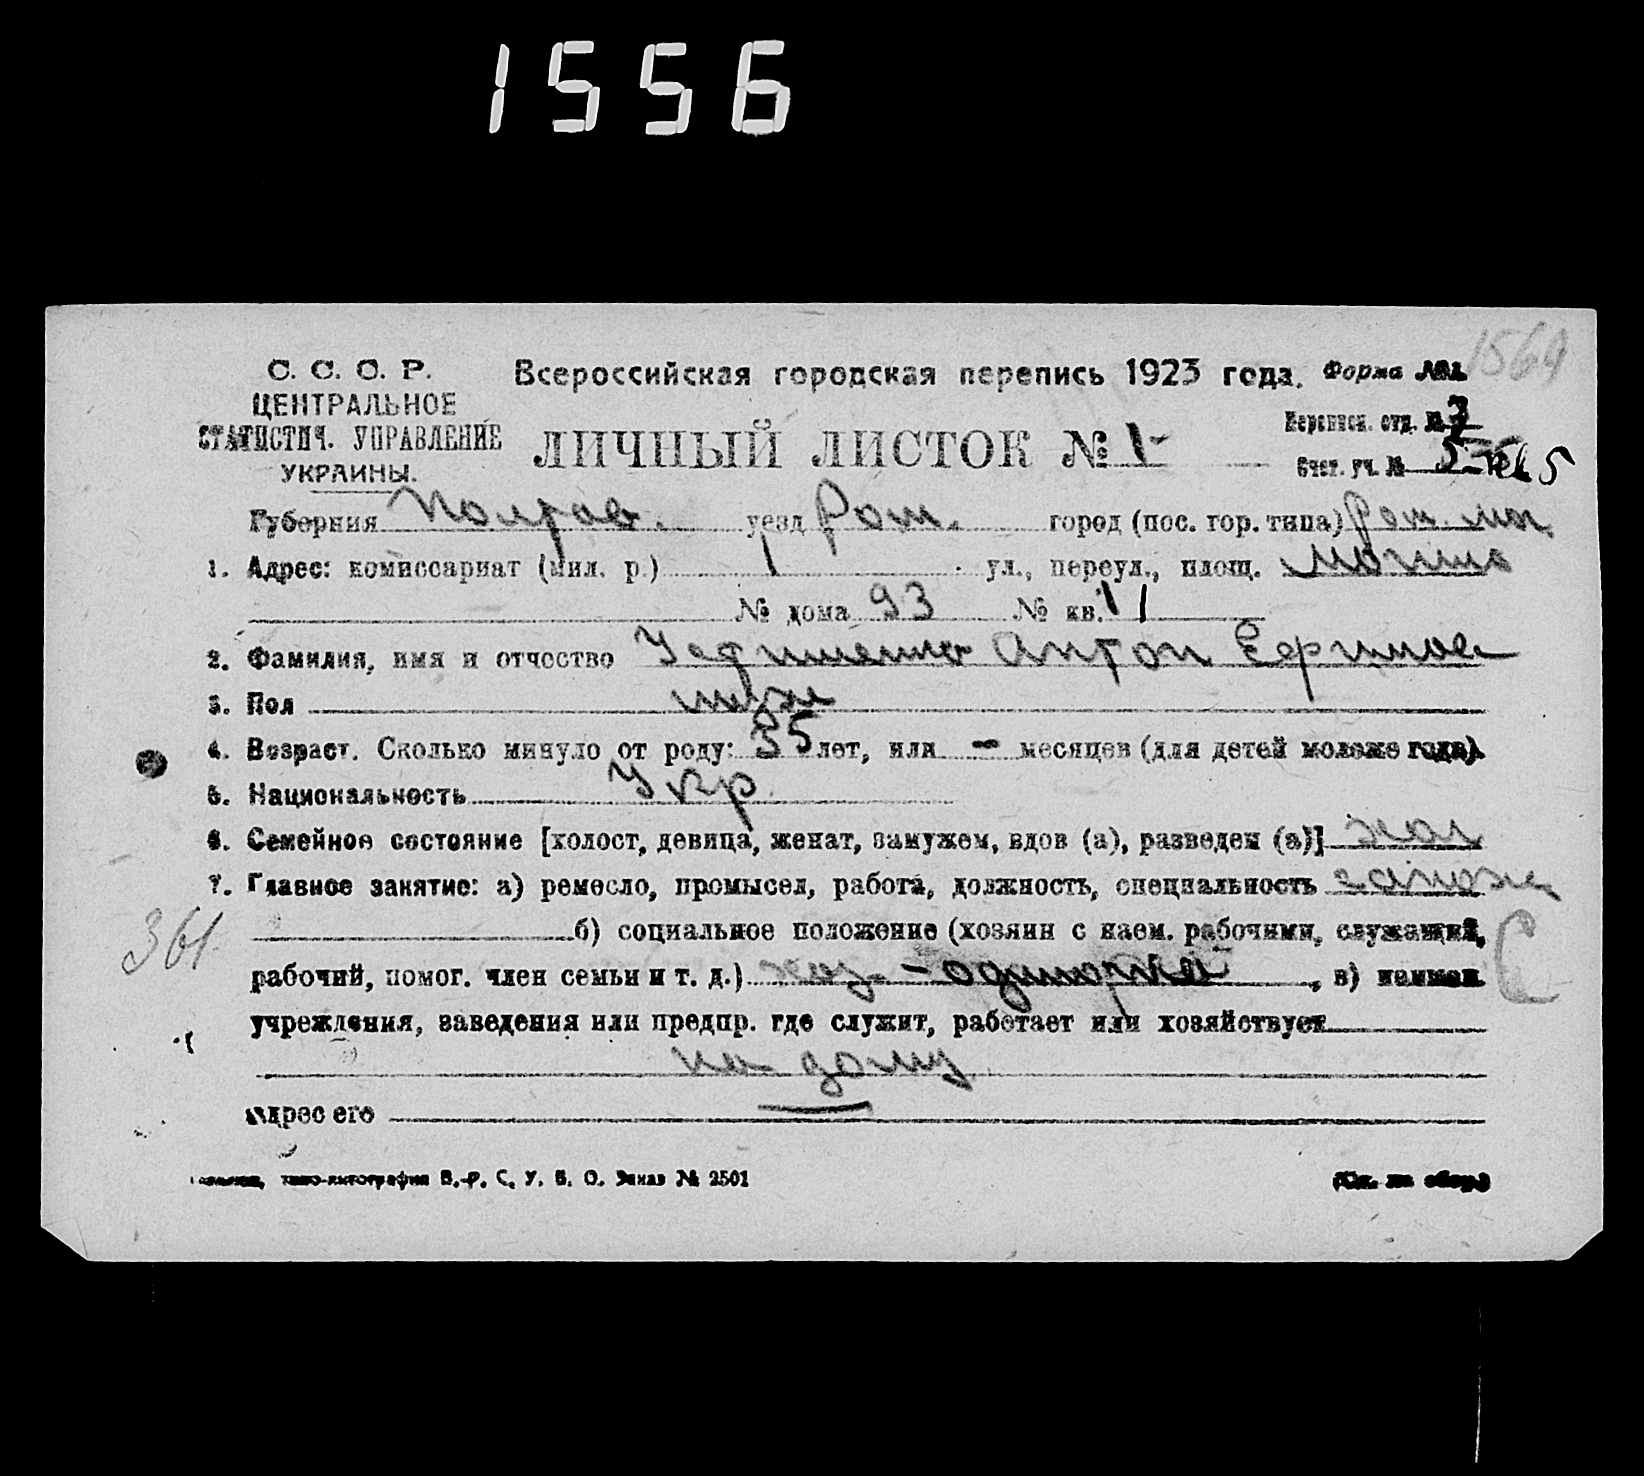 1556
1564
С. С. С. Р.
ЦЕНТРАЛЬНОЕ
СТАТИСТИЧ. УПРАВЛЕНИЕ
УКРАИНЫ.
Всероссийская городская перепись 1923 года. Форма №1
ЛИЧНЫЙ ЛИСТОК № 1
Переписн. отд. № 3
Счет. уч. № 5
Губерния Полтав. уезд Ром. город (пос. гор. типа) Ром.
1. Адрес: комиссариат (мил. р.) 1 ул., переул., площ.
№ дома 93 № кв. 11
2. Фамилия, имя и отчество Антон
3. Пол муж
4. Возраст. Сколько минуло от роду: 35 лет, или — месяцев (для детей моложе года).
5. Национальность Укр.
6. Семейное состояние [холост, девица, женат, замужем, вдов (а), разведен (а)]
7. Главное занятие: а) ремесло, промысел, работа, должность, специальность
361
б) социальное положение (хозяин с наем. рабочими, служащий,
рабочий, помог. член семьи и т. д.) хоз. - одиночка, в) наимен.
С
учреждения, заведения или предпр. где служит, работает или хозяйствует
на дому
Адрес его
типо-литография В.-Р. С. У. В. О. Заказ № 2501
(См. на обор.)